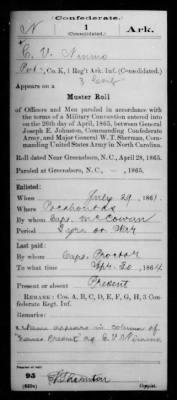 (Confederate.)
N 1 Ark.
(Consolidated.)
E. V. Nimmo
Pvt, Co. K, 1 Reg't Ark. Inf. (Consolidated.)
3 Conf
Appears on a
Muster Roll
of Officers and Men paroled in accordance with
the terms of a Military Convention entered into
on the 26th day of April, 1865, between General
Joseph E. Johnston, Commanding Confederate
Army, and Major General W. T. Sherman, Com-
manding United States Army in North Carolina.
Roll dated Near Greensboro, N. C., April 28, 1865.
Paroled at Greensboro, N. C., , 1865.
Enlisted:
When July 29, 1861.
Where Pocahontas
By whom Capt. McCowan
Period 3 yrs or War
Last paid:
By whom Capt. Proctor
To what time Apr. 30, 1864
Present or absent Present
REMARK: Cos. A, B, C, D, E, F, G, H, 3 Confederate Regt. Inf.
Remarks:
Name appears in column of
Names Present as E. V. Nimmo
Number of roll:
95
(639c) Copyist.